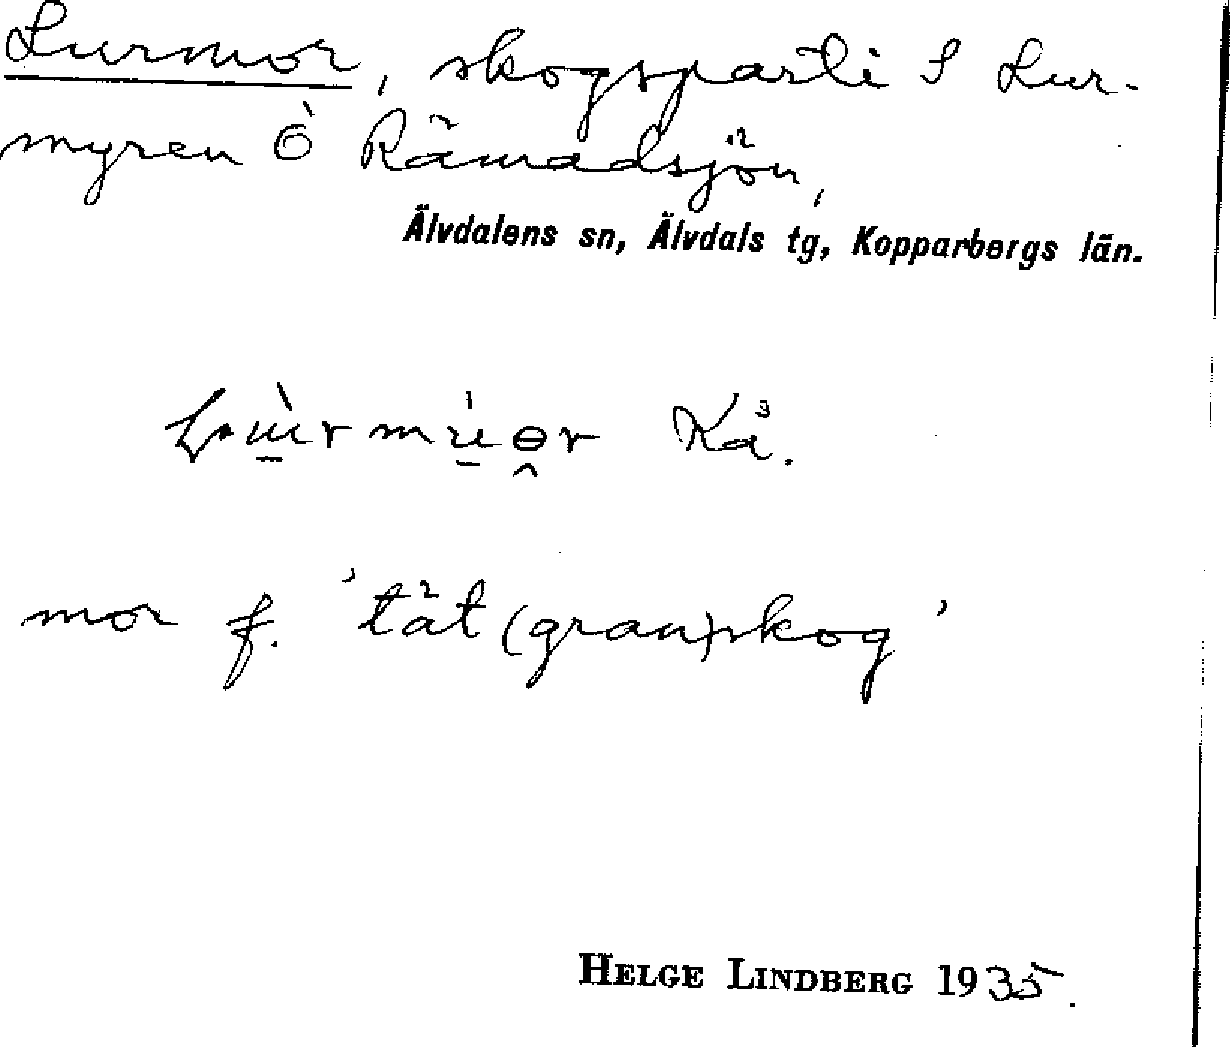 Lurmor, skogsparti S Lur-
myren Ö Rämadsjön,
Älvdalens sn, Älvdals tg, Kopparbergs län.
Kå.
mor f. 'tät (gran)skog'
HELGE LINDBERG 1935.